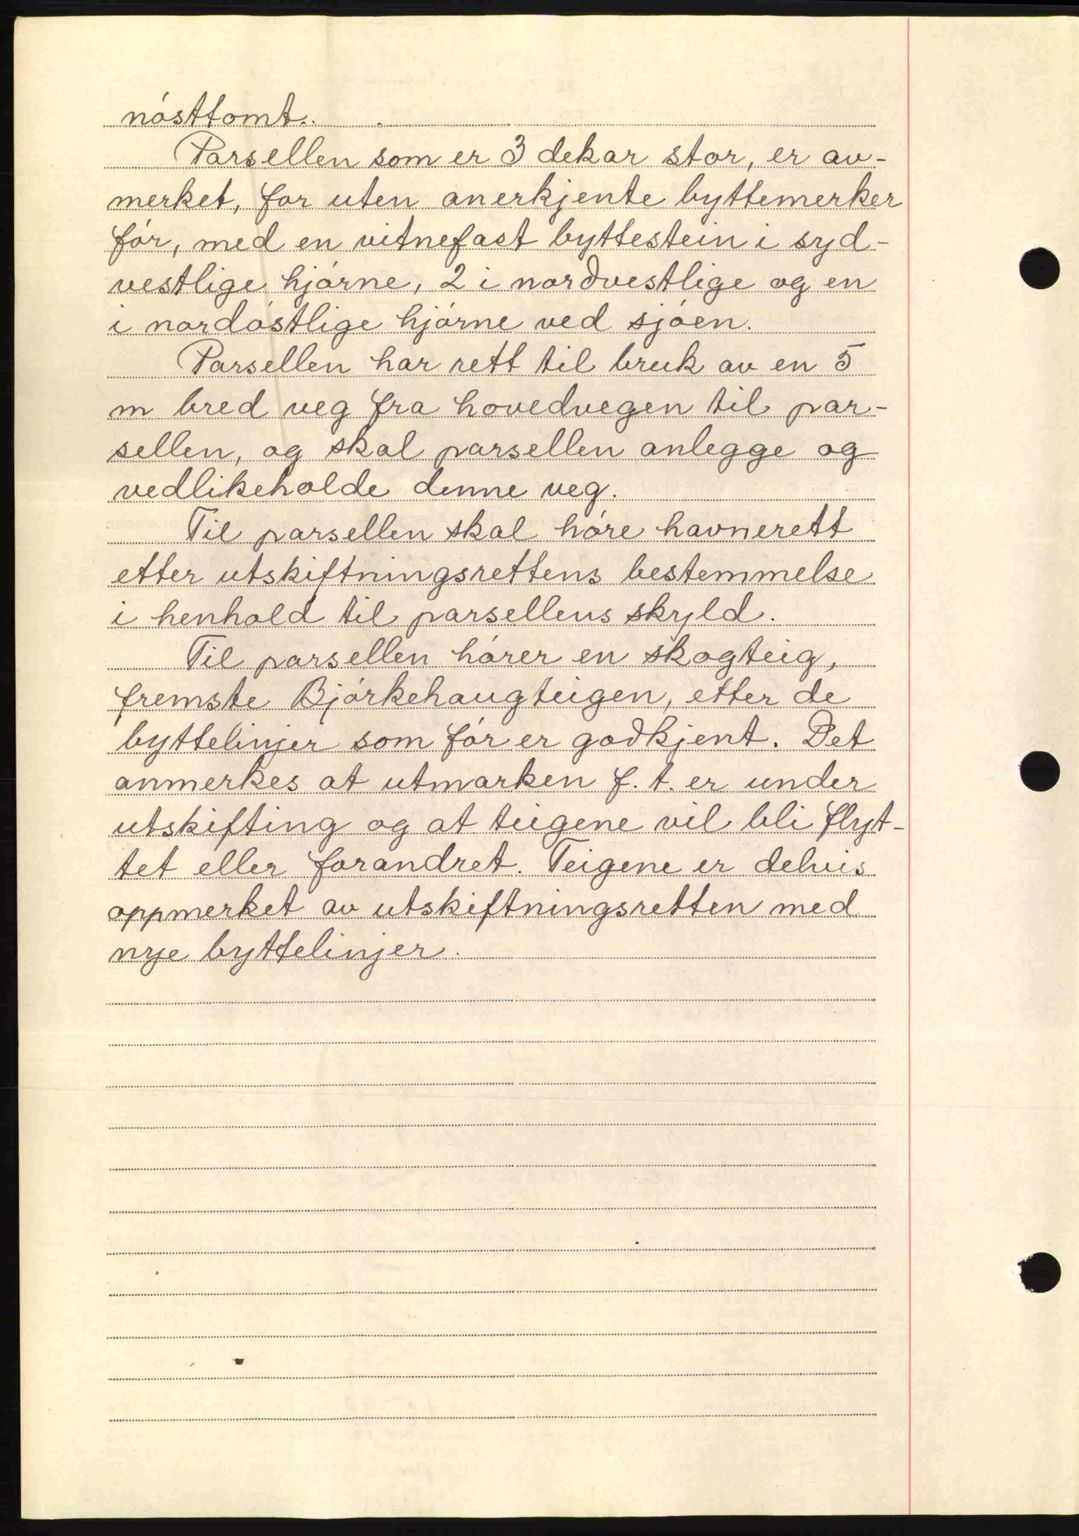 nósttomt.
Parsellen som er 3 dekar stor, er av-
merket, for uten anerkjente byttemerker
fór, med en vitnefast byttestein i syd-
vestlige hjórne, 2 i nordvestlige og en
i nordóstlige hjórne ved sjóen.
Parsellen har rett til bruk av en 5
m bred veg fra hovedvegen til par-
sellen, og skal parsellen anlegge og
vedlikeholde denne veg.
Til parsellen skal hóre havnerett
etter utskiftningsrettens bestemmelse
i henhold til parsellens skyld.
Til parsellen hórer en skogteig,
fremste Bjórkehaugteigen, etter de
byttelinjer som fór er godkjent. Det
anmerkes at utmarken f. t. er under
utskifting og at teigene vil bli flyt-
tet eller forandret. Teigene er delvis
oppmerket av utskiftningsretten med
nye byttelinjer.